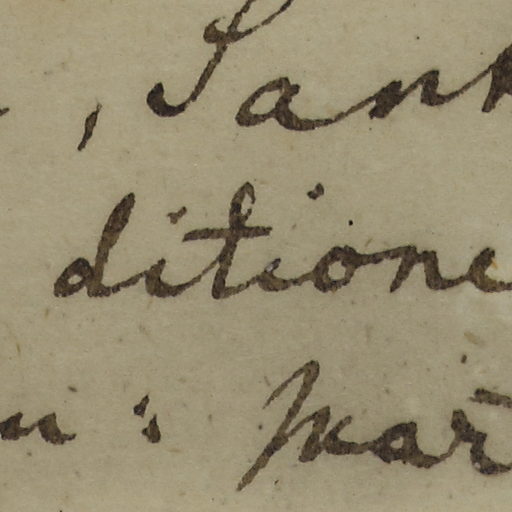 , San
ditione
: Mar